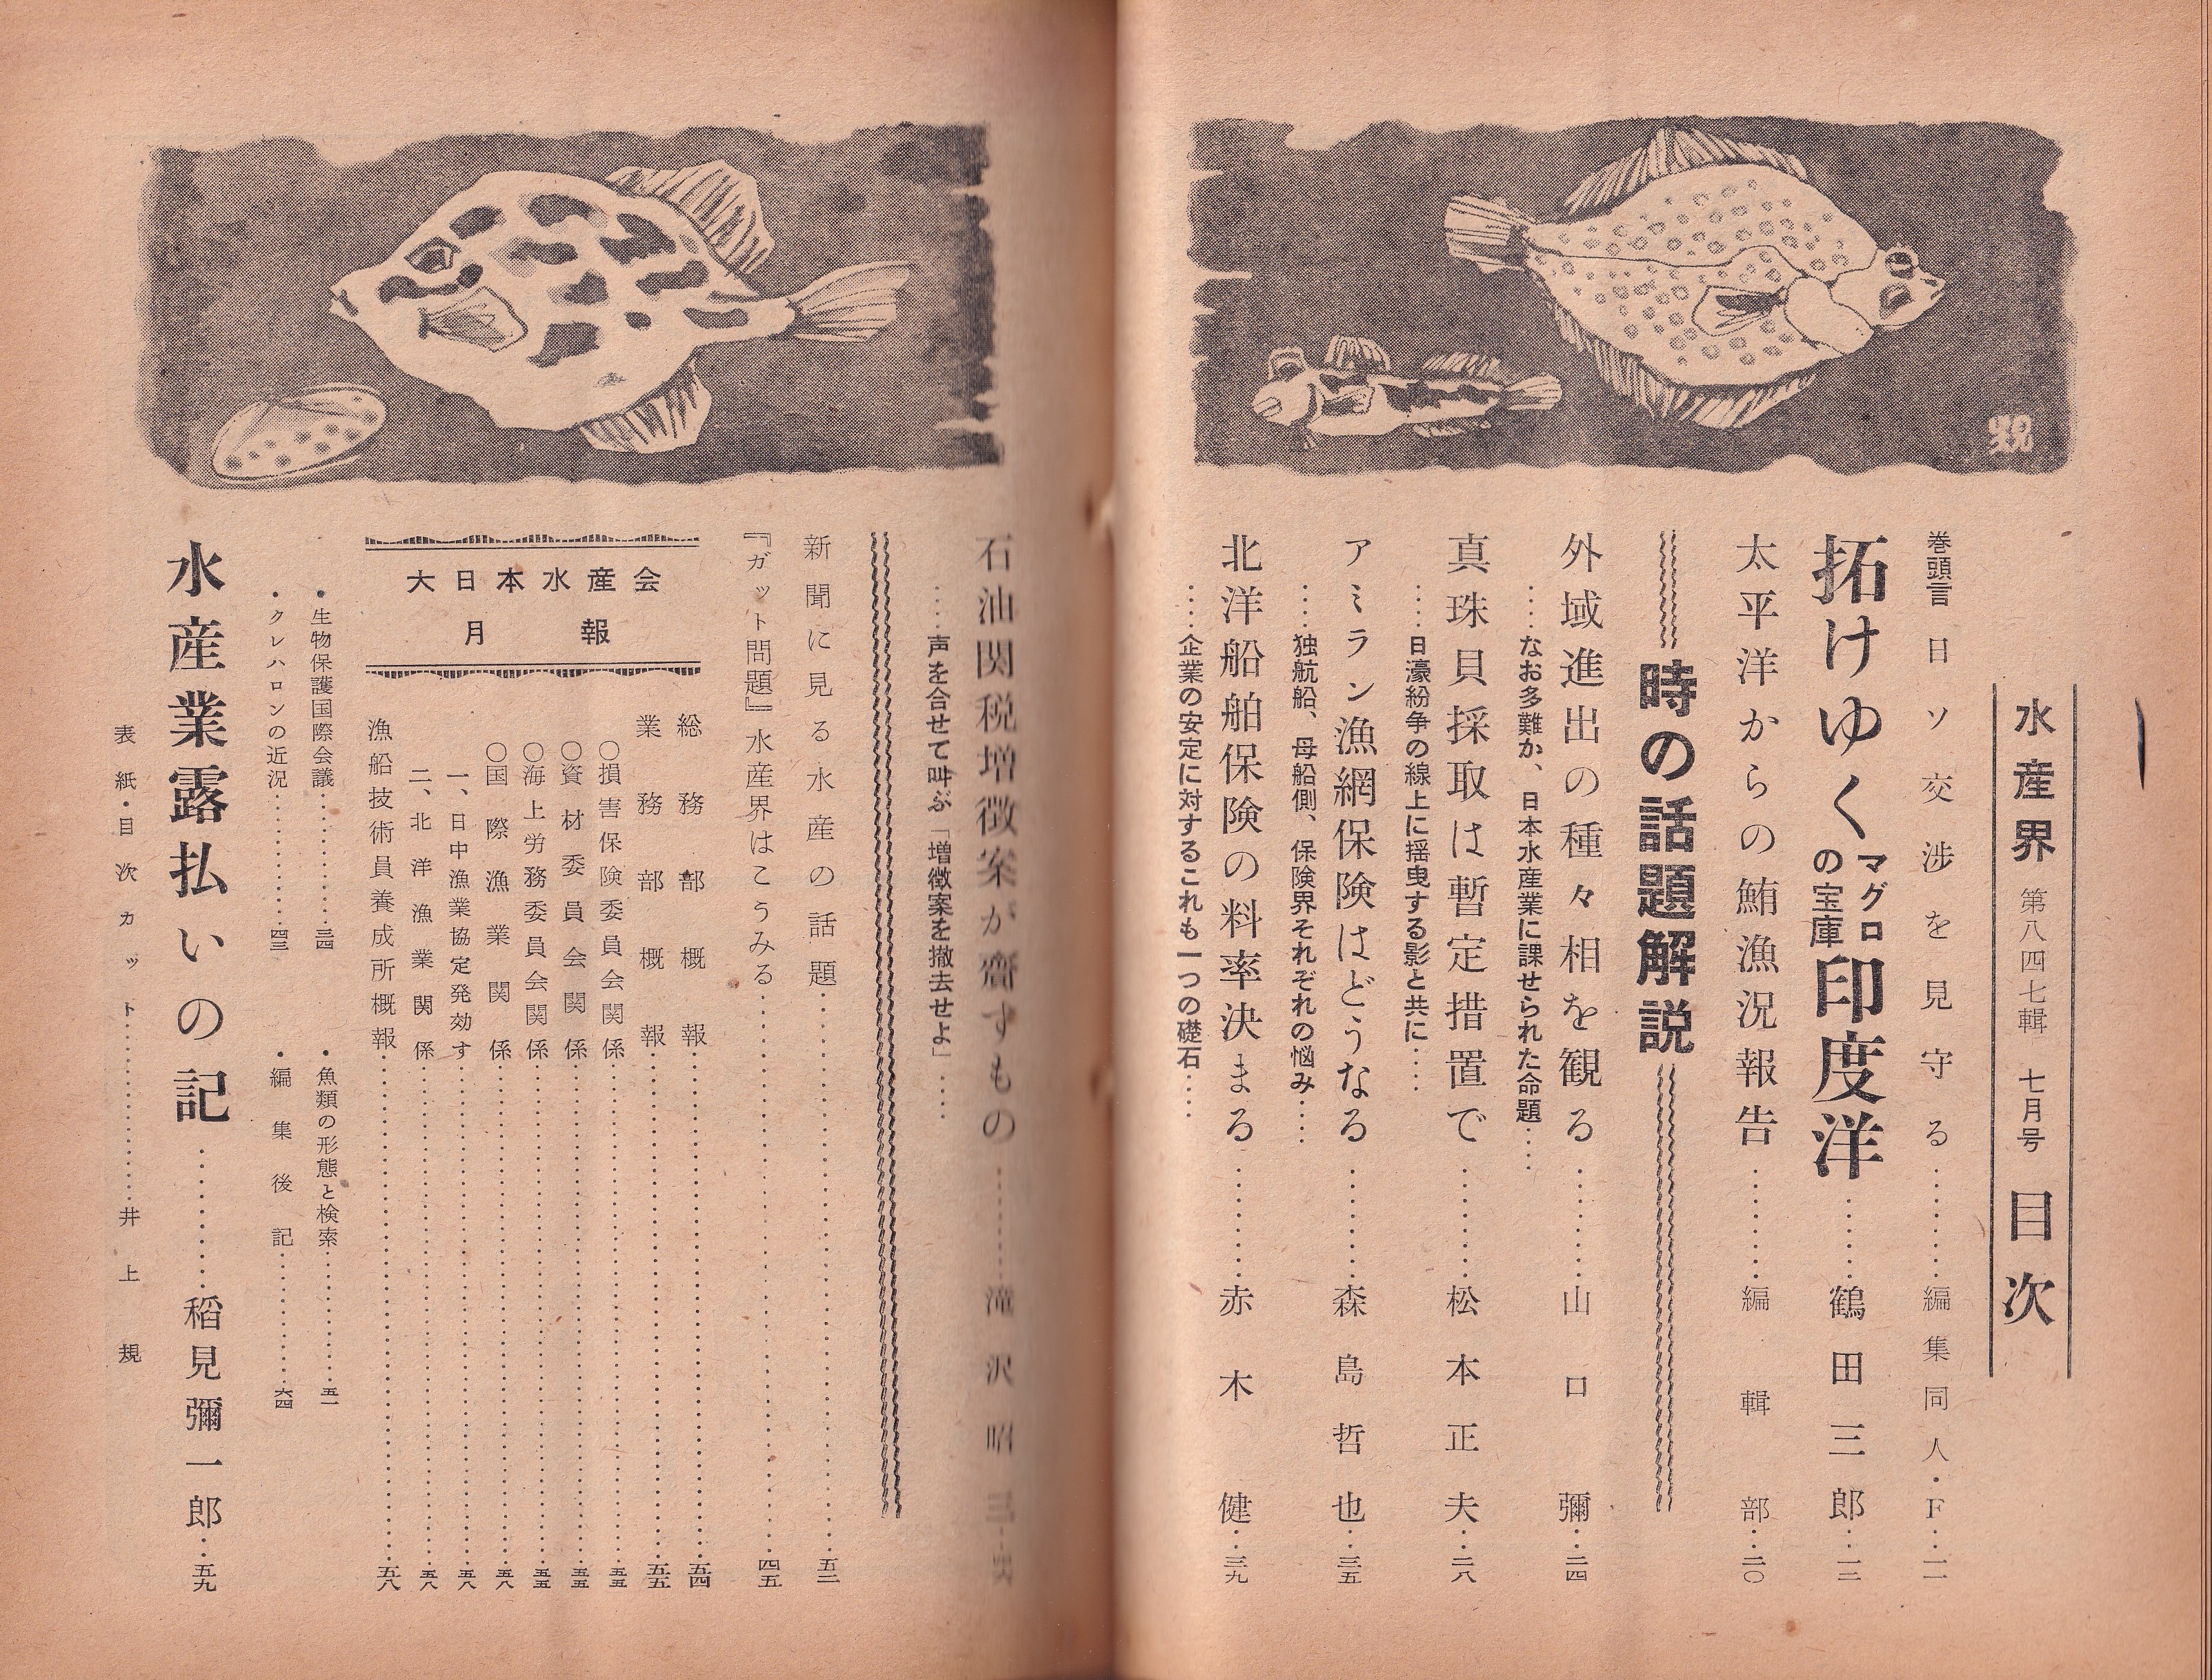 水産界 第八四七輯 七月号 目次
巻頭言 日ソ交渉を見守る…………編集同人・F…一一
拓けゆくマグロの宝庫印度洋……鶴田三郎…一二
太平洋からの鮪漁況報告…………編輯部…二〇
時の話題解説
外域進出の種々相を観る…………山口彌…二四
……なお多難か、日本水産業に課せられた命題……
真珠貝採取は暫定措置で…………松本正夫…二八
……日濠紛争の線上に揺曳する影と共に……
アミラン漁網保険はどうなる…………森島哲也…三五
……独航船、母船側、保険界それぞれの悩み……
北洋船舶保険の料率決まる…………赤木健…三九
……企業の安定に対するこれも一つの礎石……
石油関税増徴案が齎すもの…………滝沢昭三…
……声を合せて叫ぶ「増徴案を撤去せよ」……
新聞に見る水産の話題…………五二
『ガット問題』水産界はこうみる…………四五
大日本水産会
月報
総務部概報…………五四
業務部概報…………五五
〇損害保険委員会関係…………五五
〇資材委員会関係…………五五
〇海上労務委員会関係…………五五
〇国際漁業関係…………五八
一、日中漁業協定発効す…………五八
二、北洋漁業関係…………五八
漁船技術員養成所概報…………五八
・生物保護国際会議…………三四
・魚類の形態と検索…………五一
・クレハロンの近況…………四三
・編集後記…………六四
水産業露払いの記…………稻見彌一郎…五九
表紙・目次カット…………井上規